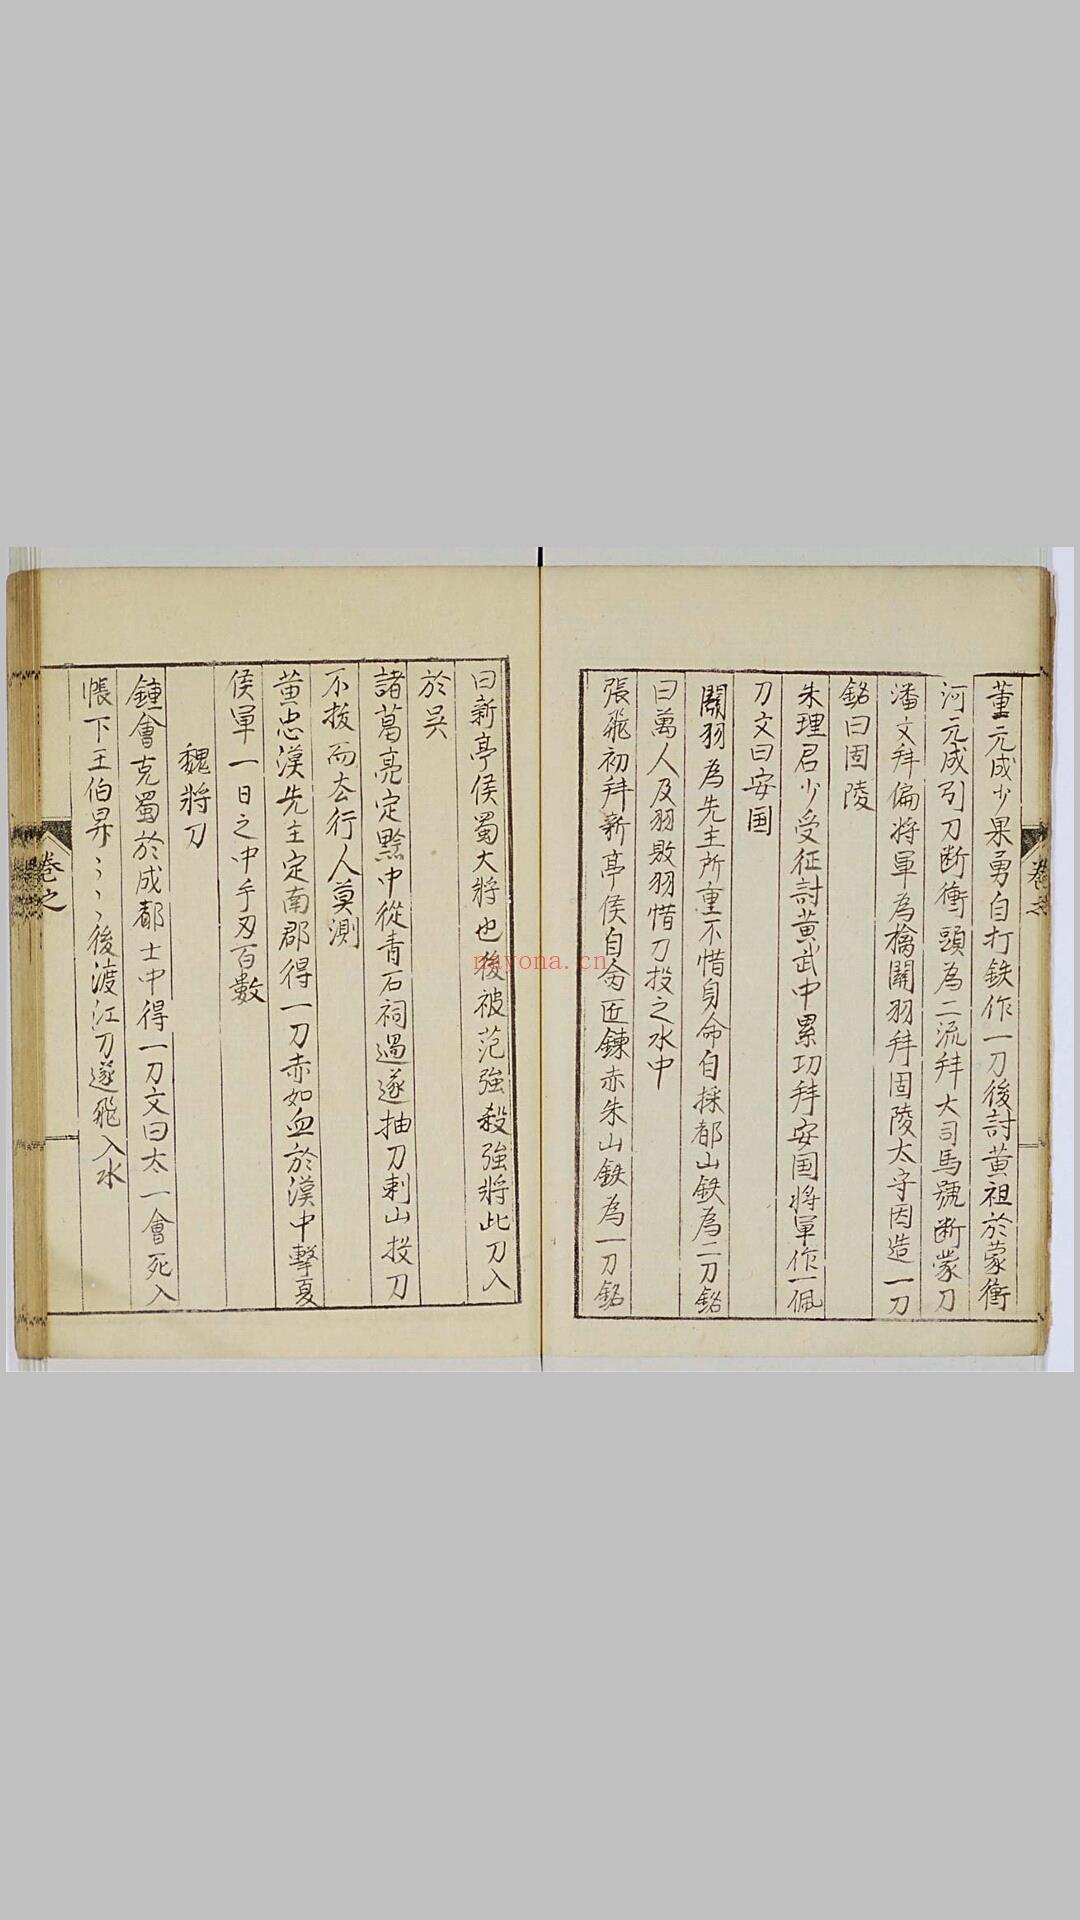 董元成少果勇自打鉄作一刀後討黄祖於蒙衝
河元成引刀断衝頭為二流拜大司馬號断蒙刀
潘文拜偏将軍為擒關羽拜固陵太守因造一刀
銘曰固陵
朱理君少受征討黄武中累功拜安国将軍作一佩
刀文曰安国
關羽為先主所重不惜身命自採都山鉄為二刀銘
曰萬人及羽敗羽惜刀投之水中
張飛初拜新亭侯自命匠鍊赤朱山鉄為一刀銘
曰新亭侯蜀大將也後被范強殺強將此刀入
於吴
諸葛亮定黔中從青石祠過遂抽刀刺山投刀
不拔而去行人莫測
黄忠漢先主定南郡得一刀赤如血於漢中擊夏
侯軍一日之中手刃百數
魏將刀
鍾會克蜀於成都土中得一刀文曰太一會死入
帳下王伯昇〻〻後渡江刀遂飛入水
卷之
卷之
nayona.cn